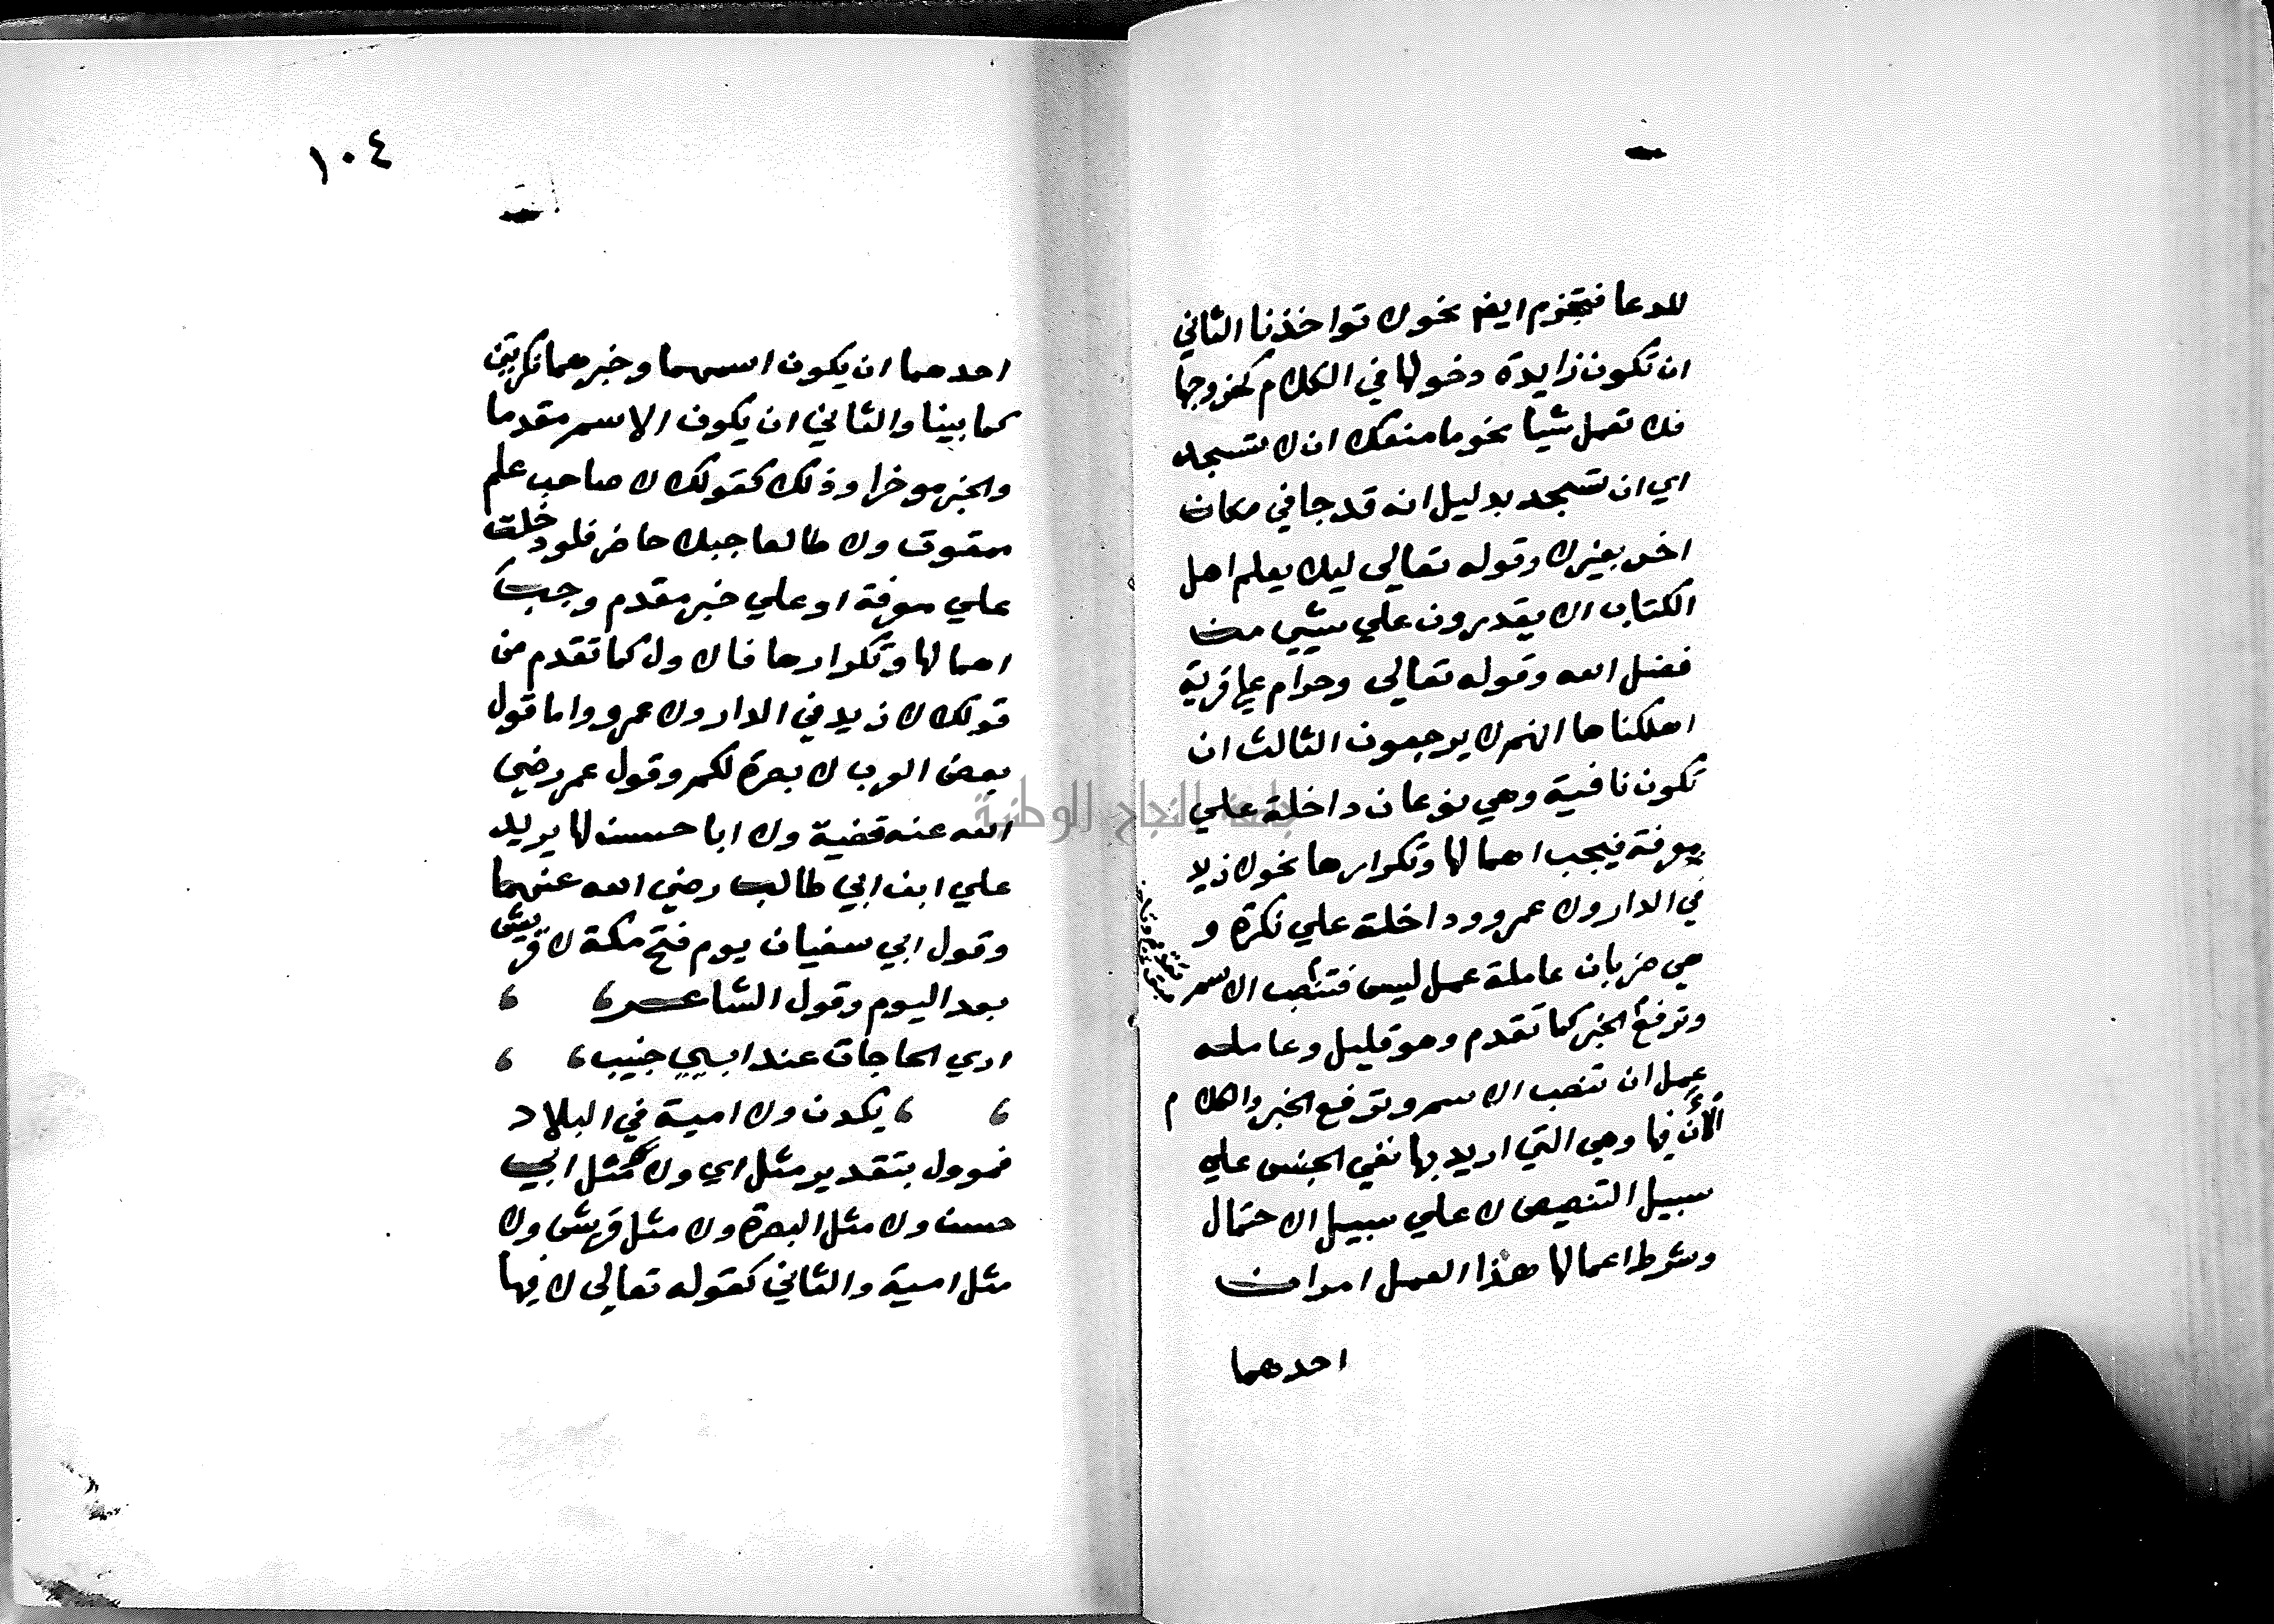 للدعا فتجزم ايضا نحو لا تواخذنا الثاني
ان تكون زايدة دخولها في الكلام كخروجها
فلا تعمل شيا نحو ما منعك ان لا تسجد
اي ان تسجد بدليل انه قد جا في مكان
اخر بغير لا وقوله تعالى ليلا يعلم اهل
الكتاب الا يقدرون علي شيي من
فضل الله وقوله تعالى وحرام علي قرية
اهلكناها انهم لا يرجعون الثالث ان
تكون نافية وهي نوعان داخلة علي
معرفة فيجب اهمالها وتكرارها نحو لا زيد
في الدار ولا عمرو وداخلة علي نكرة و
هي ضربان عاملة عمل ليس فتنصب الاسم
وترفع الخبر كما تقدم وهو قليل وعاملة
عمل ان تنصب الاسم وترفع الخبر والكلام
الأن فيها وهي التي اريد بها نفي الجنس علي
سبيل التنصيص لا علي سبيل الاحتمال
وشرط اعمالها هذا العمل امران
احدهما
١٠٤
احدهما ان يكون اسمهما وخبرهما نكرتين
كما بينا والثاني ان يكون الاسم مقدما
والخبر موخرا وذلك كقولك لا صاحب علم
ممقوت ولا طالعا جبلا حاضر فلو دخلت
علي معرفة او علي خبر مقدم وجب
اهمالها وتكرارها فالاول كما تقدم من
قولك لا زيد في الدار ولا عمرو واما قول
بعض العرب لا بصرة لكم وقول عمر رضي
الله عنه قضية ولا ابا حسن لها يريد
علي ابن ابي طالب رضي الله عنهما
وقول ابي سفيان يوم فتح مكة لا قريش
بعد اليوم وقول الشاعر
اري الحاجات عند ابيي خبيب
يكدن ولا امية في البلاد
فموول بتقدير مثل اي ولا مثل ابي
حسن ولا مثل البصرة ولا مثل قريش ولا
مثل امية والثاني كقوله تعالى لا فيها
جامعة النجاح الوطنية